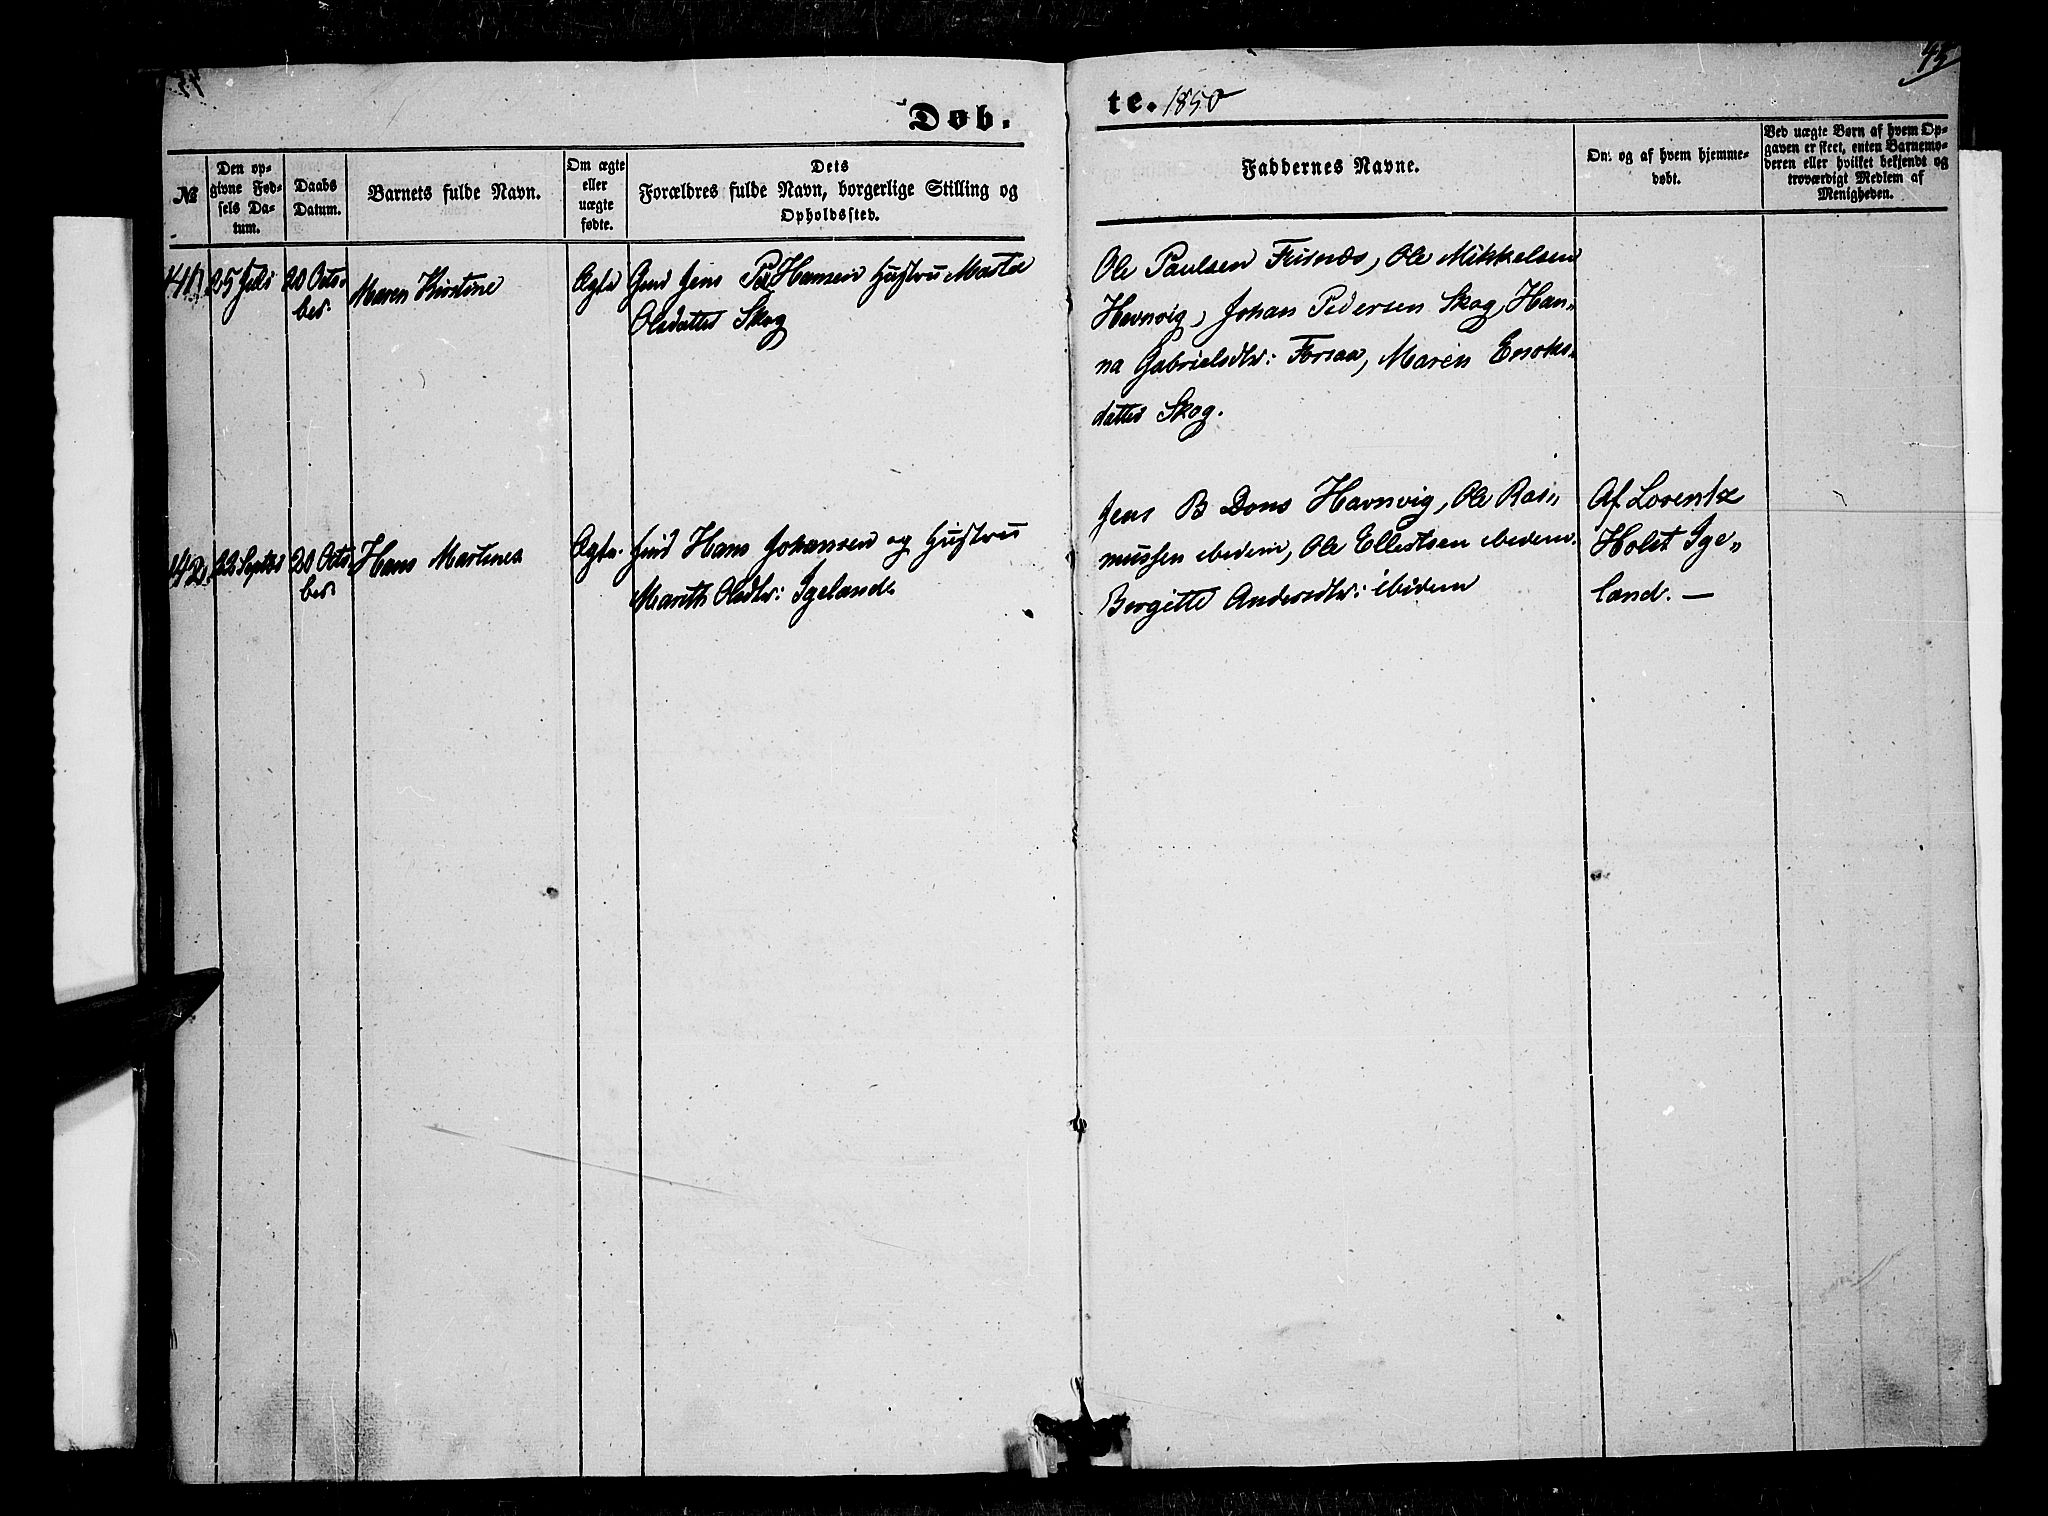 45
Døb.
te. 1850
№
Den op-
givne Fød-
sels Da-
tum.
Daabs
Datum.
Barnets fulde Navn.
Om ægte
eller
uægte
fødte.
Dets
Forældres fulde Navn, borgerlige Stilling og
Opholdssted.
Faddernes Navne.
Om og af hvem hjemme-
døbt.
Ved uægte Børn af hvem Op-
gaven er skeet, enten Barnemo-
deren eller hvilket bekjendt og
troværdigt Medlem af
Menigheden.
141
25 Juli
20 Octo-
ber.
Maren Kirstine
Ægte
Jens Hansen Hustru
Olsdatter Skog
Ole Paulsen Fiisnæs, Ole Mikkelsen
Hevnvig, Johan Pedersen Skog, Han-
na Gabrielsdtr: Forsaa, Maren Enoks-
datter Skog.
142
22 Septbr
20 Octo-
ber
Hans Martines
Ægte.
Hans Johansen og Hustru
Mareth Olsdtr: Igeland.
Jens B Dons Havnvig, Ole Ras-
mussen ibidem, Ole Ellertsen ibidem.
Bergitte Andersdtr: ibidem
Af Lorentz
Holst Ige-
land. —